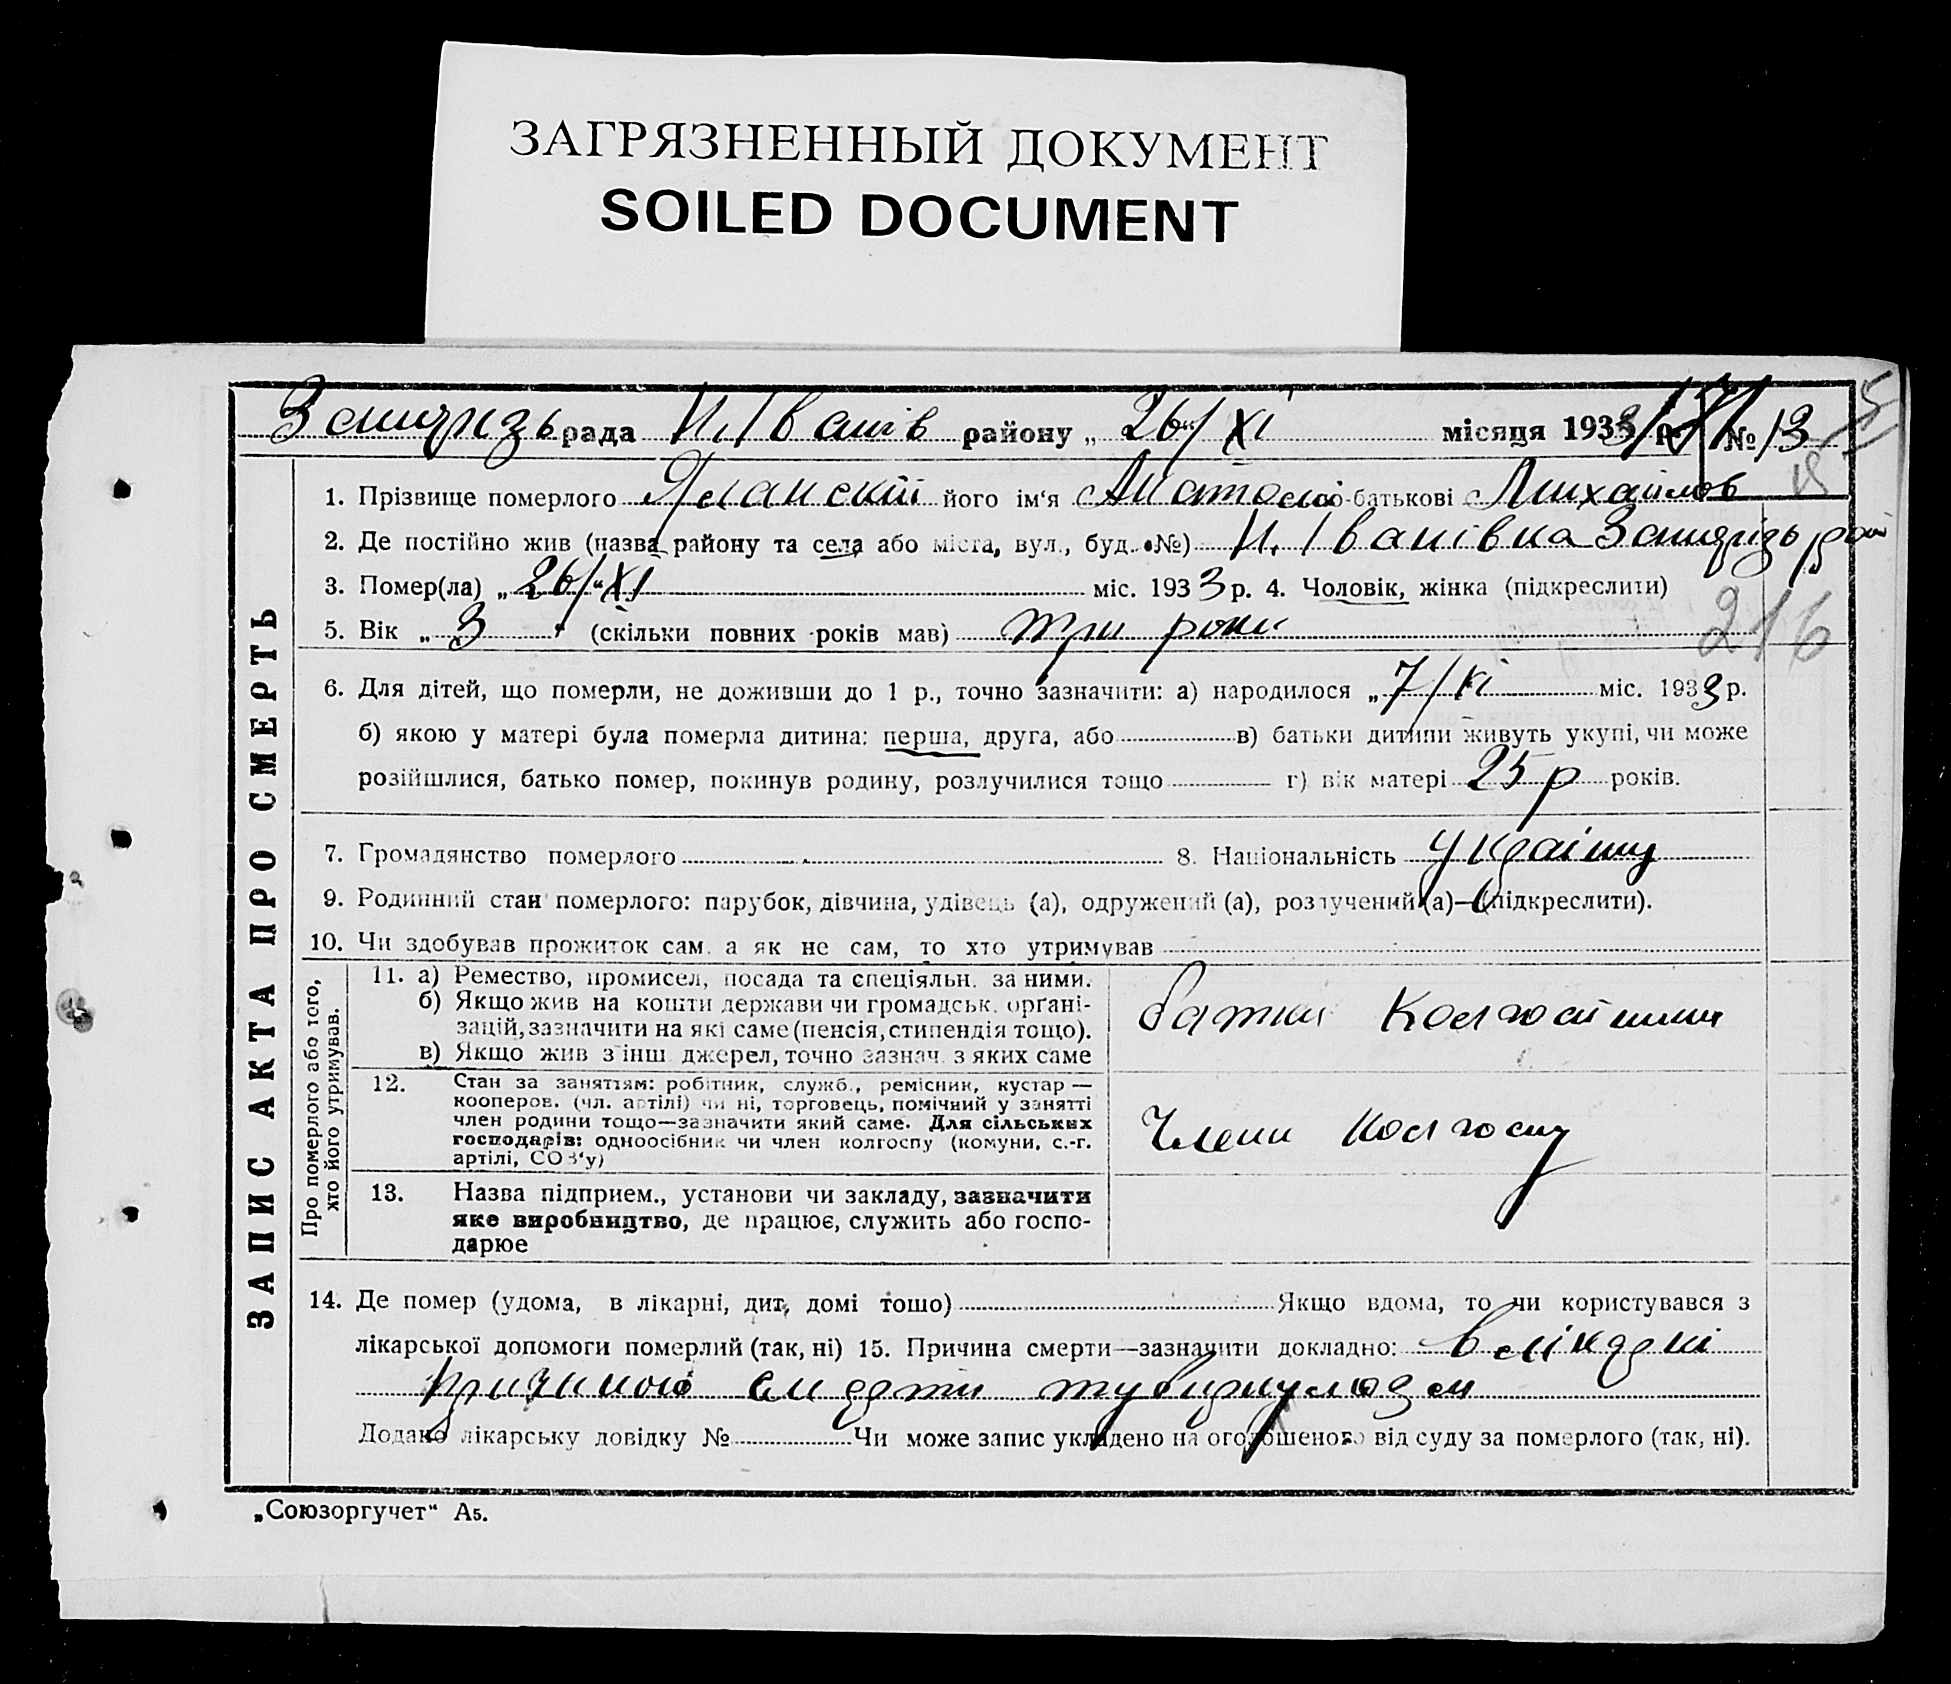 ЗАГРЯЗНЕННЫЙ ДОКУМЕНТ
SOILED DOCUMENT
рада Н. Іванів району „ 26/XI місяця 1933 р. № 13
1. Прізвище померлого його ім'я Анатолій по-батькові Михайлов
2. Де постійно жив (назва району та села або міста, вул., буд. №) Н. Іванівка
3. Помер(ла) „ 26/"XI міс. 1933 р. 4. Чоловік, жінка (підкреслити)
5. Вік „ 3 " (скільки повних років мав) три роки
216
6. Для дітей, що померли, не доживши до 1 р., точно зазначити: а) народилося „ 7/XI міс. 1933 р.
б) якою у матері була померла дитина: перша, друга, або в) батьки дитини живуть укупі, чи може
розійшлися, батько помер, покинув родину, розлучилися тощо г) вік матері 25 р років.
7. Громадянство померлого 8. Національність україн
9. Родинний стан померлого: парубок, дівчина, удівець (а), одружений (а), розлучений (а)—(підкреслити).
10. Чи здобував прожиток сам, а як не сам, то хто утримував
ЗАПИС АКТА ПРО СМЕРТЬ
Про померлого або того,
хто його утримував.
11. а) Ремество, промисел, посада та спеціяльн. за ними.
б) Якщо жив на кошти держави чи громадськ. орґані-
зацій, зазначити на які саме (пенсія, стипендія тощо).
в) Якщо жив з інш джерел, точно зазнач. з яких саме
батьки колгоспники
12. Стан за заняттям: робітник, служб., ремісник, кустар —
кооперов. (чл. артілі) чи ні, торговець, помічний у занятті
член родини тощо—зазначити який саме. Для сільських
господарів: одноосібник чи член колгоспу (комуни, с.-г.
артілі, СОЗ'у)
Члени колгоспу
13. Назва підприєм., установи чи закладу, зазначити
яке виробництво, де працює, служить або госпо-
дарює
14. Де помер (удома, в лікарні, дит. домі тощо) Якщо вдома, то чи користувався з
лікарської допомоги померлий (так, ні) 15. Причина смерти—зазначити докладно:
смерти
Додано лікарську довідку № Чи може запис укладено на оголошеного від суду за померлого (так, ні).
„Союзоргучет" А5.